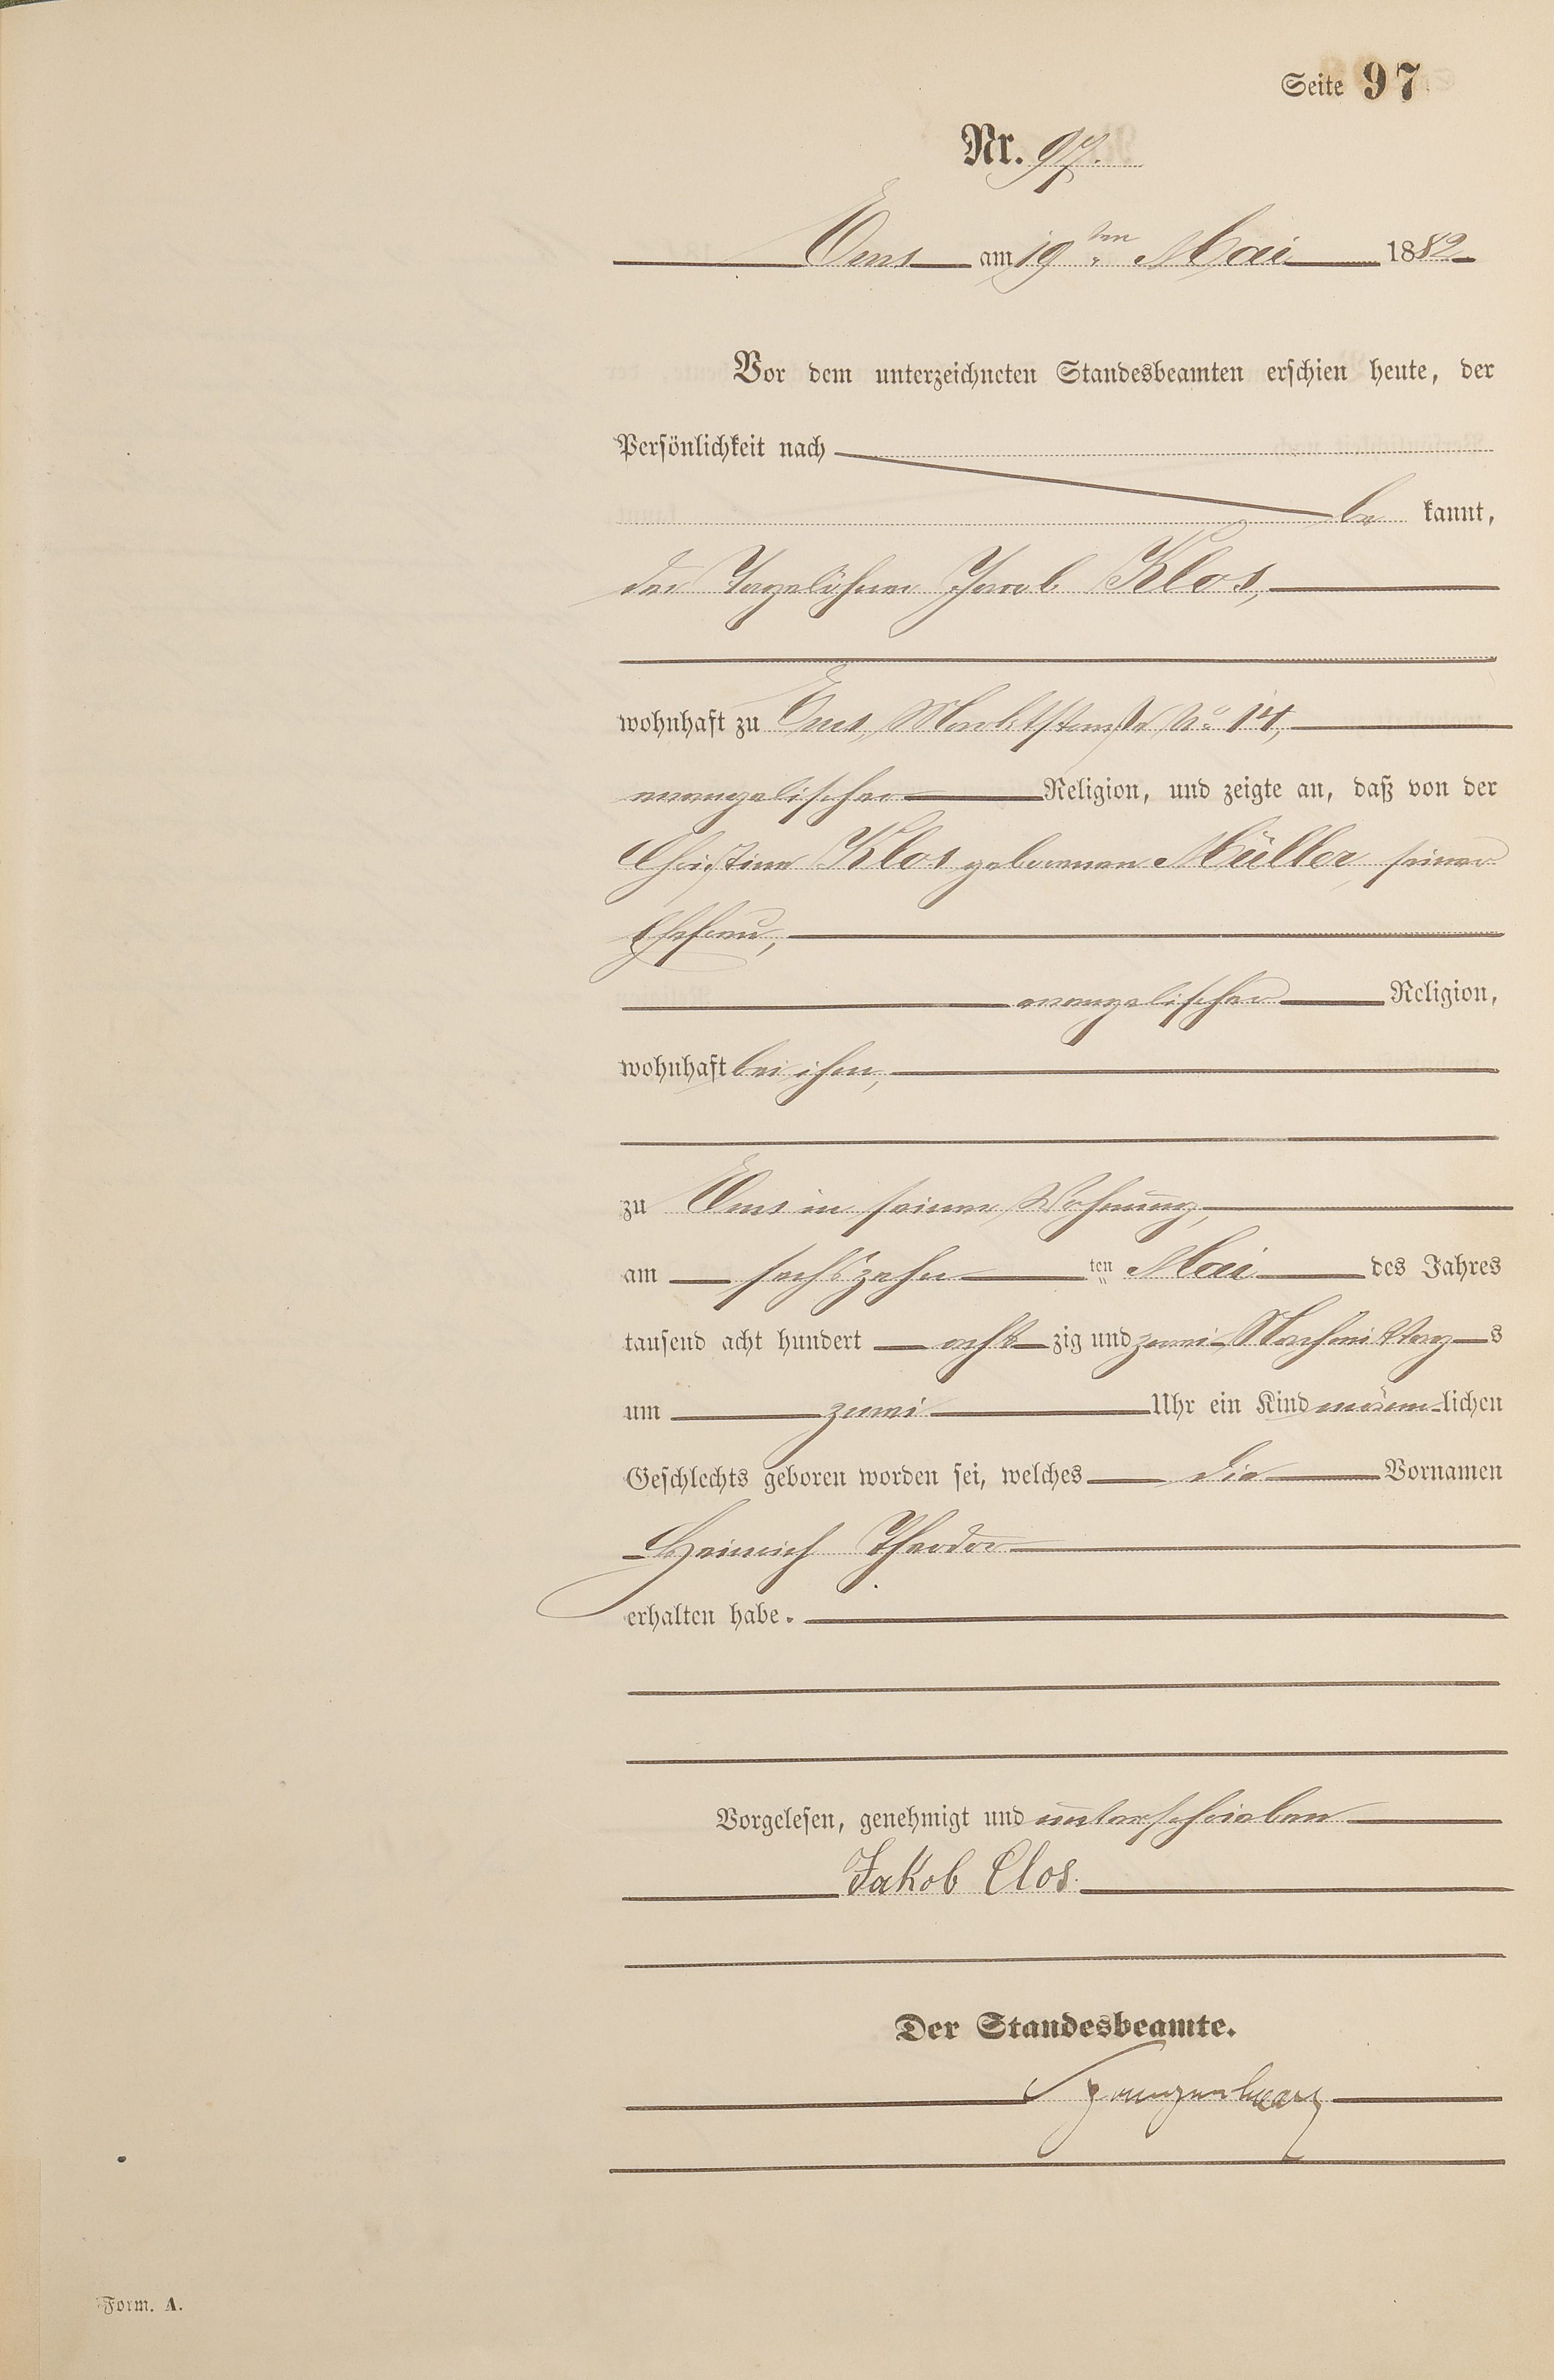 Seite 97
Nr. 97.
Ems am 19ten Mai 1882
Vor dem unterzeichneten Standesbeamten erschien heute, der
Persönlichkeit nach
be kannt,
der Tagelöhner Jacob Klos,
wohnhaft zu Ems, Marktstraße No 14,
evangelischer Religion, und zeigte an, daß von der
Christine Klos geborenen Müller, seiner
Ehefrau,
evangelischer Religion,
wohnhaft bei ihm,
zu Ems in seiner Wohnung,
am sechszehn ten Mai des Jahres
tausend acht hundert acht zig und zwei Nachmittag s
um zwei Uhr ein Kind männ lichen
Geschlechts geboren worden sei, welches die Vornamen
Heinrich Theodor
erhalten habe.
Vorgelesen, genehmigt und unterschrieben
Jakob Clos.
Der Standesbeamte.
Form. A.